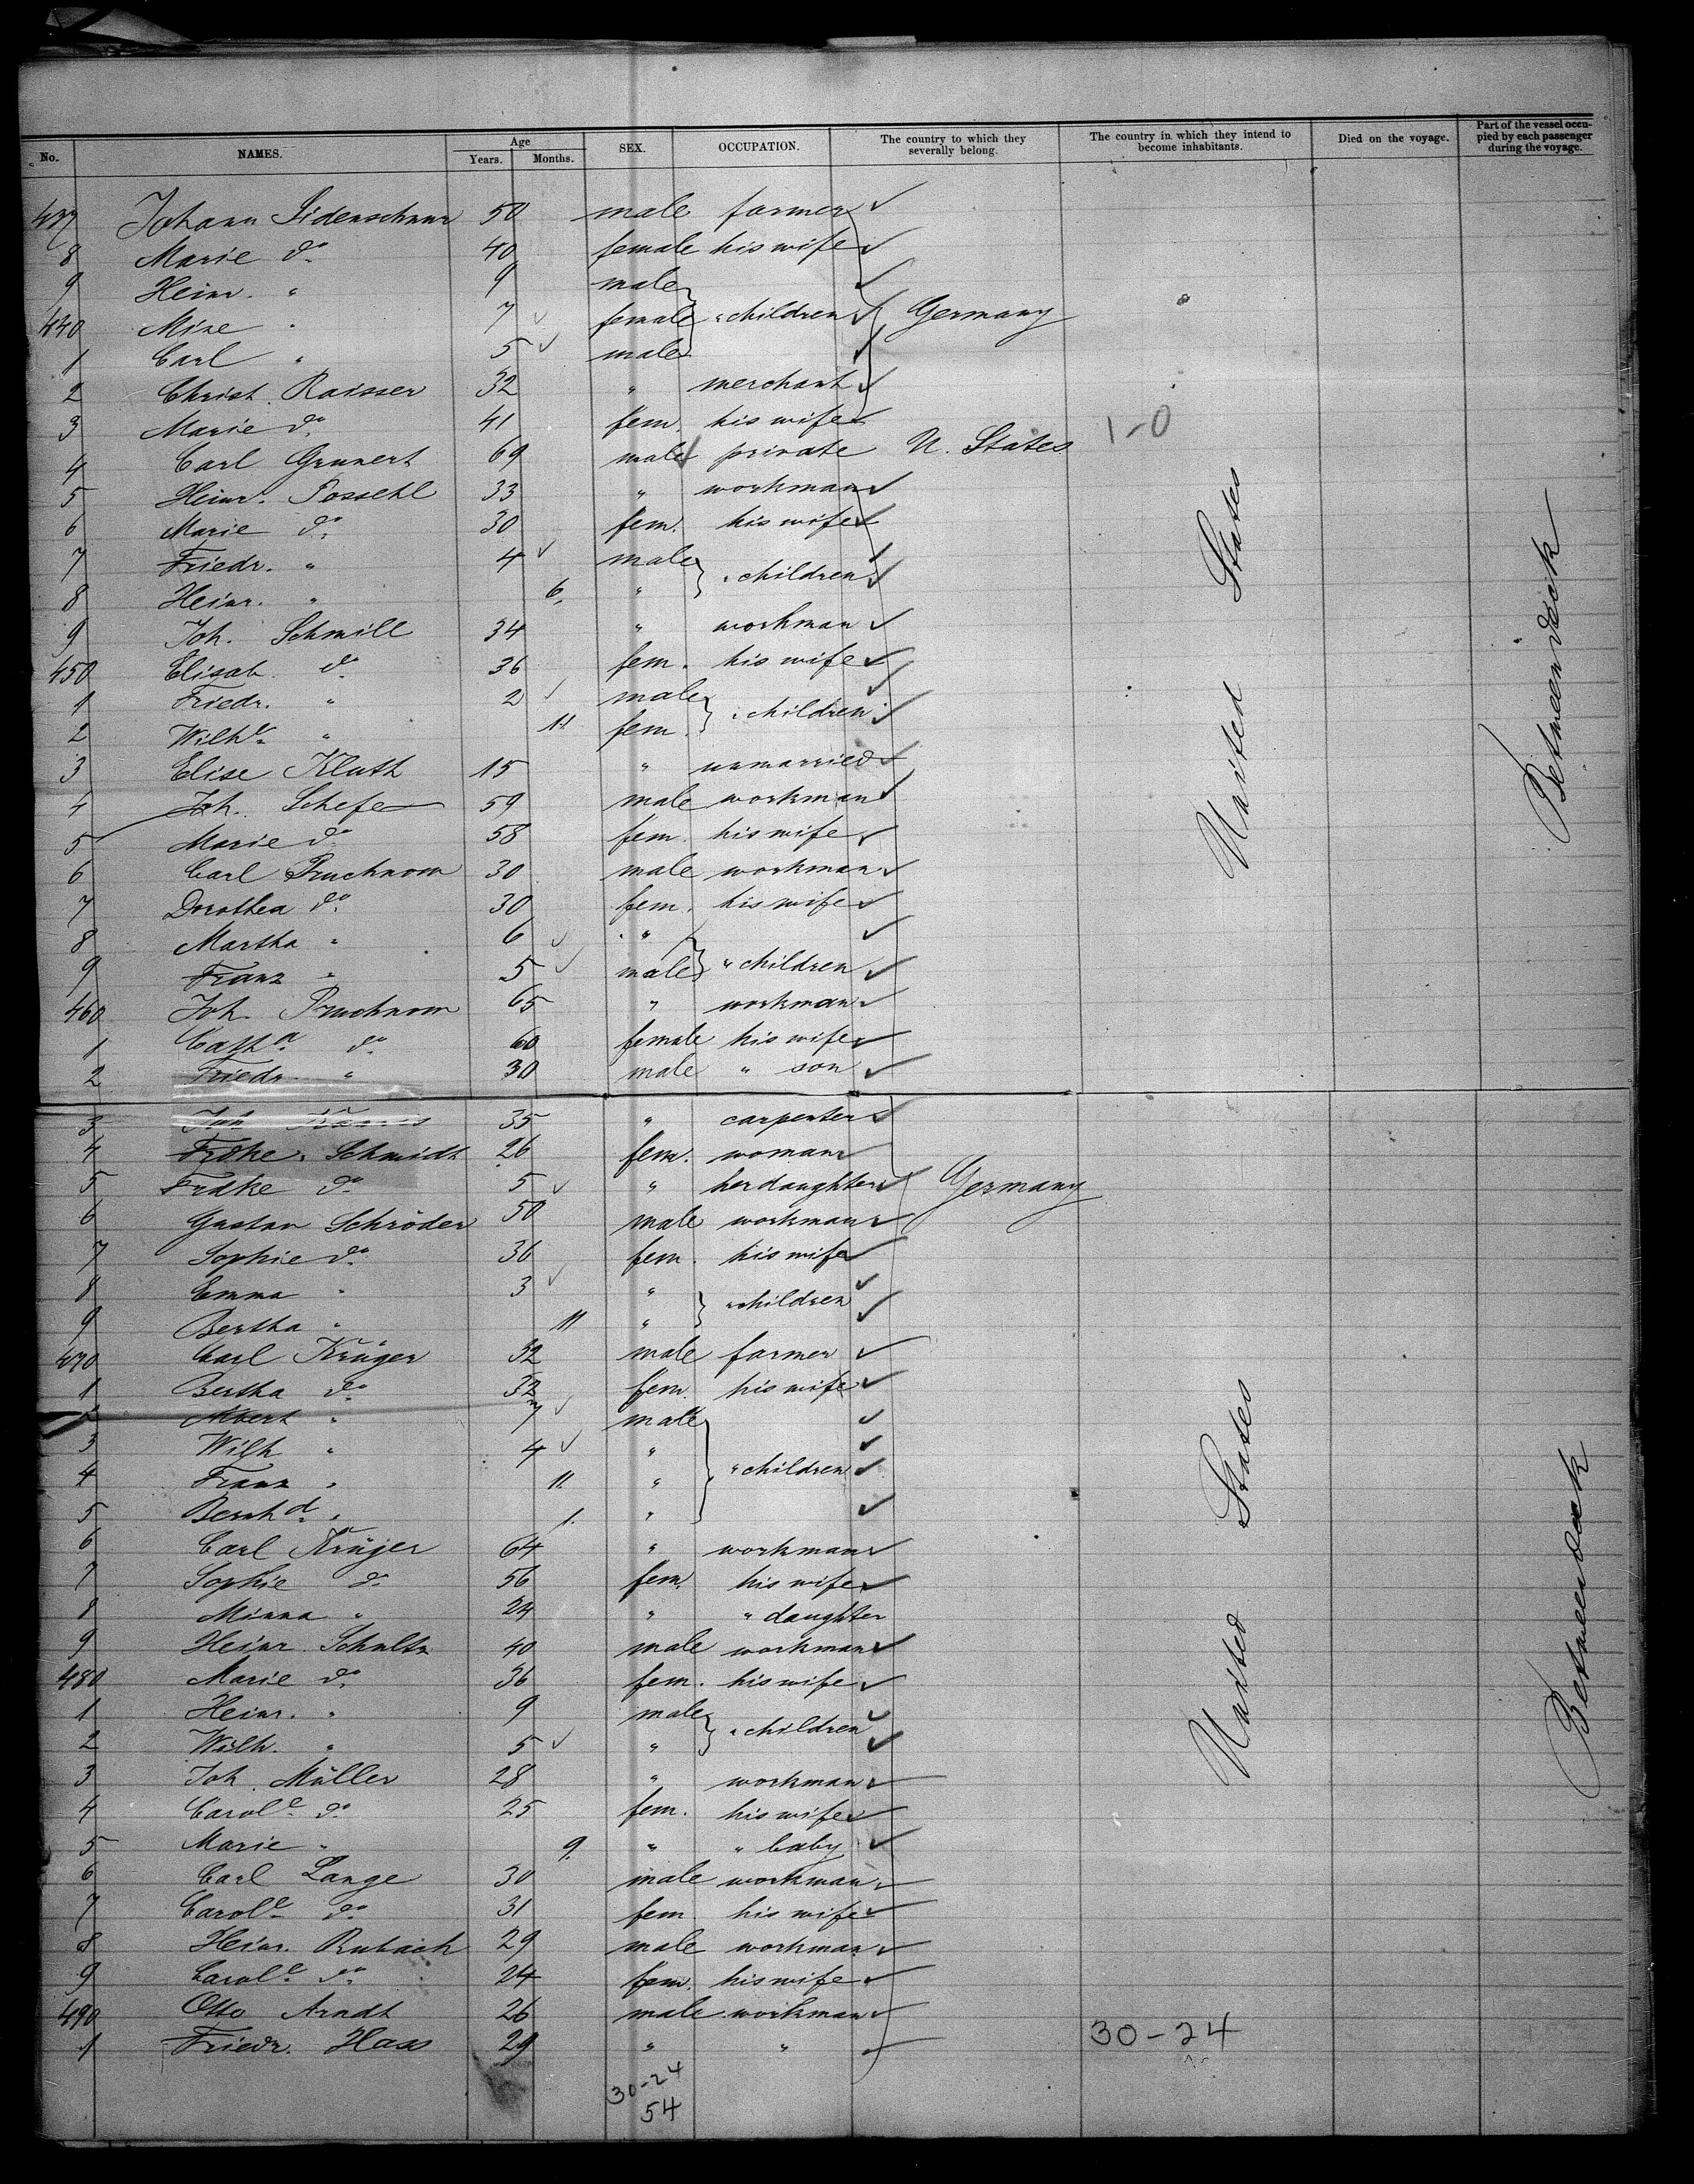 No. NAMES. Age Years. Months. SEX. OCCUPATION. The country to which they severally belong. The country in which they intend to become inhabitants. Died on the voyage. Part of the vessel occupied by each passenger during the voyage.
437 Johann Sidenschnur 50 male farmer
8 Marie do 40 female his wife
9 Heinr. " 9 male
440 Mine " 7 female " children Germany
1 Carl " 5 male
2 Christ. Raisser 32 " merchant
3 Marie do 41 fem. his wife 1-0
4 Carl Grunert 69 male private U. States
5 Heinr. Possehl 33 " workman
6 Marie do 30 fem. his wife
7 Friedr. " 4 male " children
8 Heinr. " 6 "
9 Joh. Schmill 34 " workman
450 Elisab. do 36 fem. his wife
1 Friedr. " 2 male " children
2 Wilhe " 11 fem.
3 Elise Kluth 15 " unmarried
4 Joh. Schefe 59 male workman
5 Marie do 58 fem. his wife
6 Carl Pruchnow 30 male workman
7 Dorothea do 30 fem. his wife
8 Martha " 6 "
9 Franz " 5 male " children
460 Joh. Pruchnow 65 " workman
1 Catha do 60 female his wife
2 Friedr. " 30 male " son
3 Joh 35 " carpenter
4 Frdke. Schmidt 26 fem. woman
5 Frdke do 5 " her daughter Germany
6 Gustav Schröder 50 male workman
7 Sophie do 36 fem. his wife
8 Emma " 3 " " children
9 Bertha " 11 "
470 Carl Krüger 32 male farmer
1 Bertha do 32 fem. his wife
2 Albert " 7 male
3 Wilh " 4 "
4 Franz " 11 " " children
5 Bernhd " 1 "
6 Carl Krüger 64 " workman
7 Sophie do 56 fem. his wife
8 Minna " 24 " " daughter
9 Heinr. Schultz 40 male workman
480 Marie do 36 fem. his wife
1 Heinr. " 9 male " children
2 Wilh. " 5 "
3 Joh. Müller 28 " workman
4 Carole do 25 fem. his wife
5 Marie " 9 " " baby
6 Carl Lange 30 male workman
7 Carole do 31 fem his wife
8 Heinr. Rubach 29 male workman
9 Carole do 24 fem. his wife
490 Otto Arndt 26 male workman
1 Friedr. Hass 29 " "
30-24
30-24
54
United States
Betweendeck
United States
Betweendeck